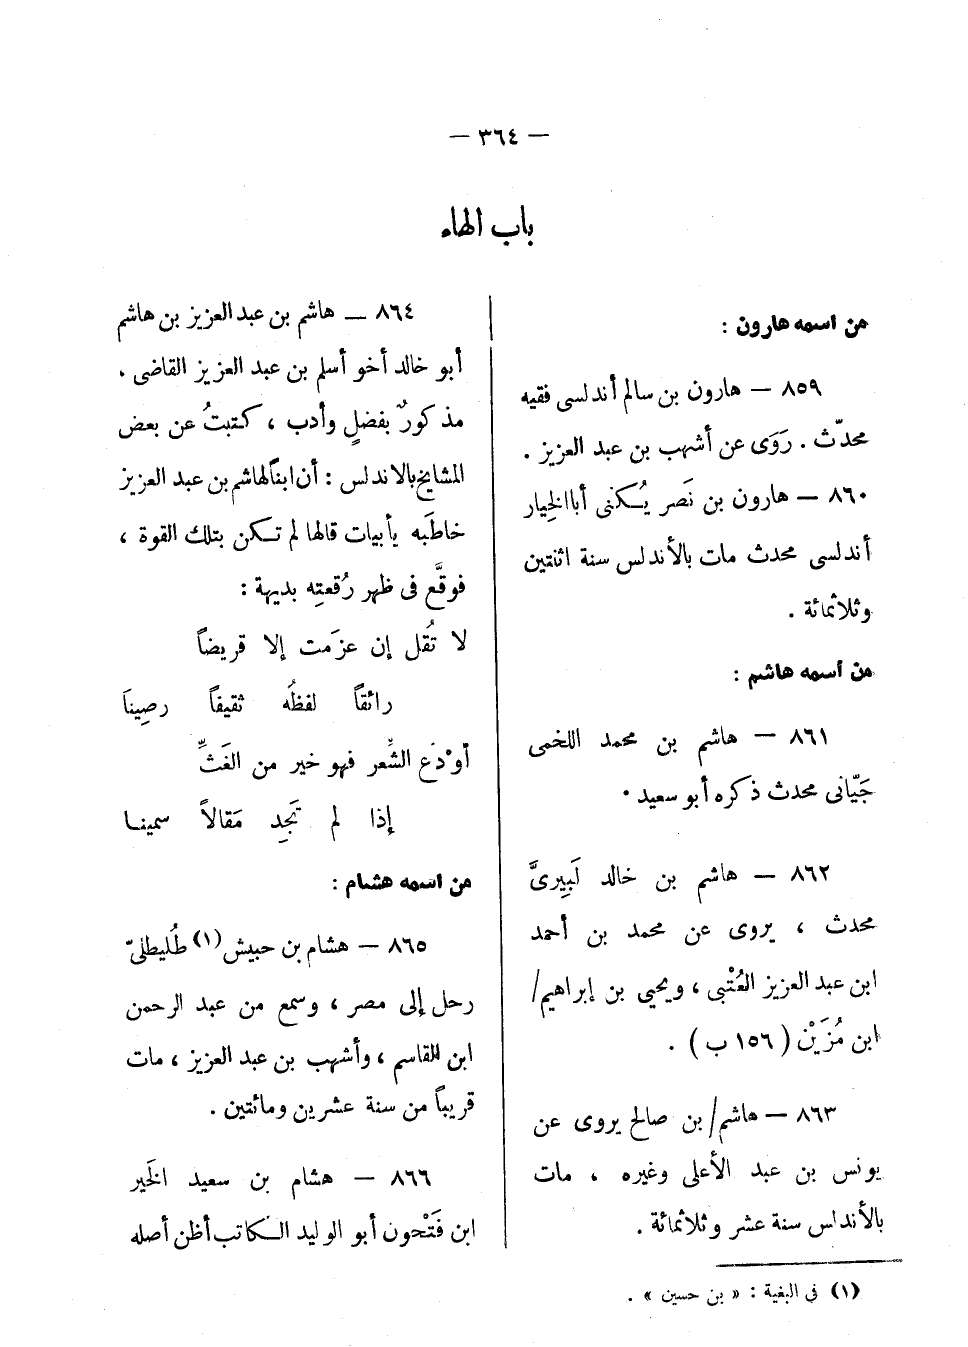 — ٣٦٤ —
باب الهاء
من اسمه هارون :
٨٥٩ — هارون بن سالم أندلسى فقيه
محدّث . رَوَى عن أشهب بن عبد العزيز .
٨٦٠ — هارون بن نَصر يُكنى أبا الخِيار
أندلسى محدث مات بالأندلس سنة اثنتين
وثلاثمائة .
من اسمه هاشم :
٨٦١ — هاشم بن محمد اللخمى
جَيّانى محدث ذكره أبو سعيد .
٨٦٢ — هاشم بن خالد لَبِيرىَّ
محدث ، يروى عن محمد بن أحمد
ابن عبد العزيز العُتْبى ، ويحيى بن إبراهيم/
ابن مُزَيْن ( ١٥٦ ب ) .
٨٦٣ — هاشم/ بن صالح يروى عن
يونس بن عبد الأعلى وغيره ، مات
بالأندلس سنة عشر وثلاثمائة .
٨٦٤ — هاشم بن عبد العزيز بن هاشم
أبو خالد أخو أسلم بن عبد العزيز القاضى .
مذكورٌ بفضلٍ وأدب ، كتبتُ عن بعض
المشايخ بالاندلس : أن ابنًا لهاشم بن عبد العزيز
خاطَبه بأبيات قالها لم تكن بتلك القوة ،
فوقَّع فى ظهر رُقعتِه بديهة :
لا تُقل إن عزَمت إلا قريضاً
رائقاً لفظُه ثقيفاً رصِينَا
أوْ دَعِ الشِّعر فهو خير من الغَثِّ
إذا لم تَجِد مَقالاً سمينـا
من اسمه هشام :
٨٦٥ — هشام بن حبيش (١) طُليطلىّ
رحل إلى مصر ، وسمع من عبد الرحمن
ابن القاسم ، وأشهب بن عبد العزيز ، مات
قريباً من سنة عشرين ومائتين .
٨٦٦ — هشام بن سعيد الخَير
ابن فَتْحون أبو الوليد الكاتب أظن أصله
(١) فى البغية : « بن حسين » .